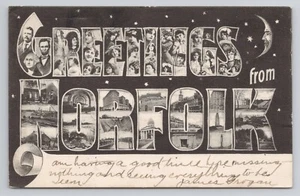 GREETINGS
from
NORFOLK
am having a good time missing
nothing and seeing everything to be
seen.